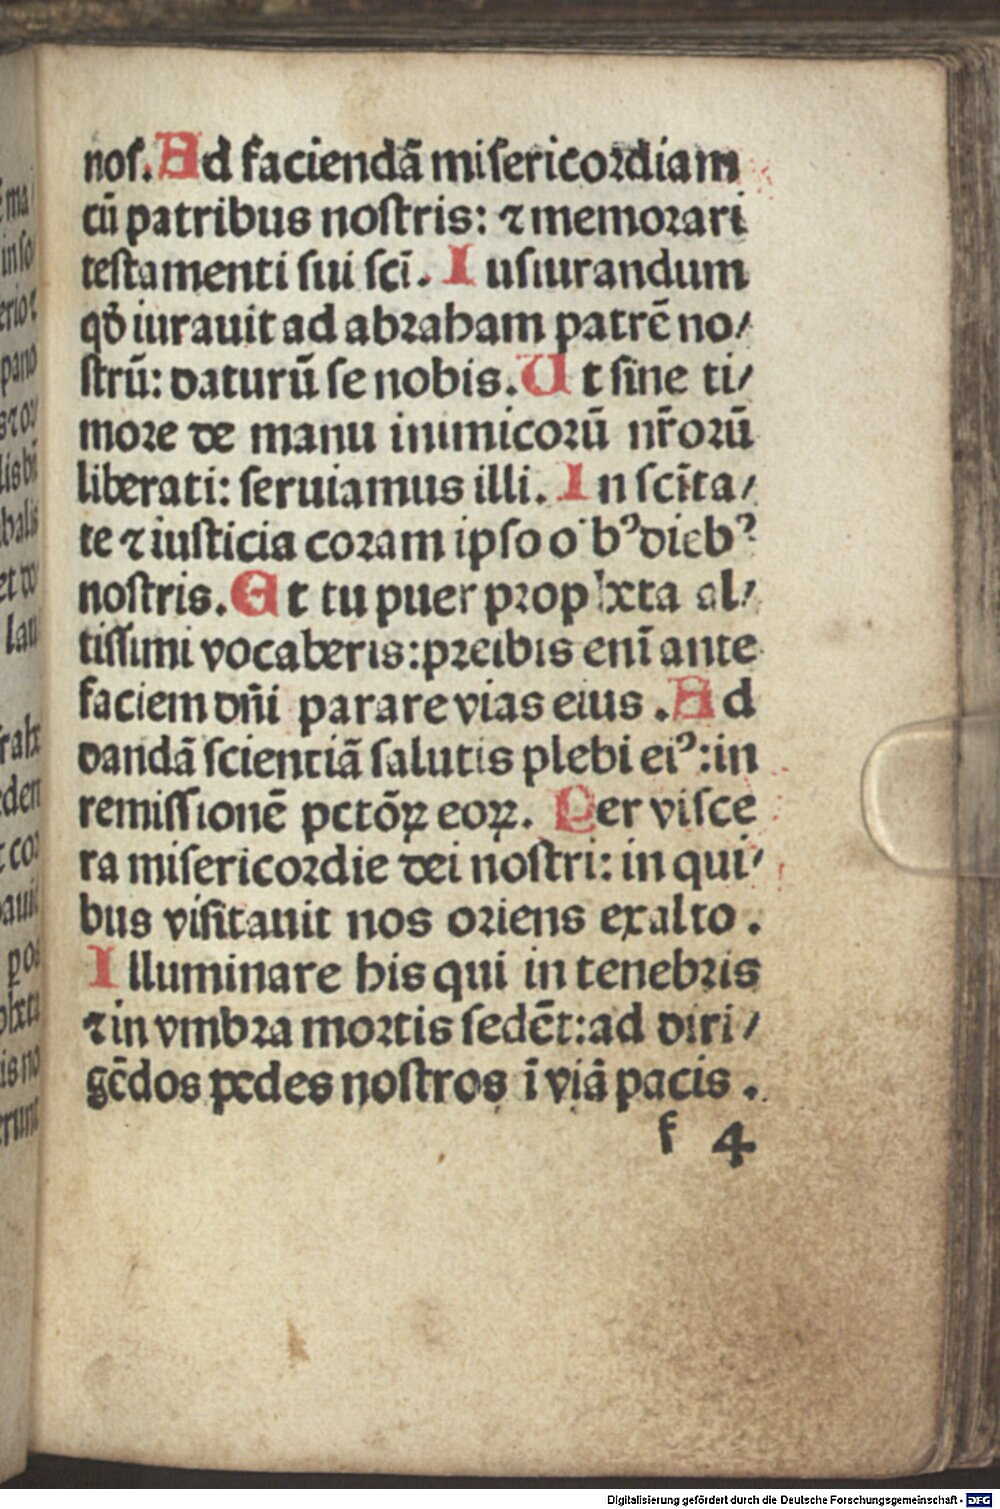 nos. Ad faciendā misericordiam
cū patribus nostris: ⁊ memorari
testamenti sui scī. Iusiurandum
qď iurauit ad abraham patrē no/
strū: daturū se nobis. Ut sine ti/
more de manu inimicorū nr̄orū
liberati: seruiamus illi. In scīta/
te ⁊ iusticia coram ipso oībꝰ diebꝰ
nostris. Et tu puer propheta al/
tissimi vocaberis: preibis enī ante
faciem dn̄i parare vias eius. Ad
dandā scientiā salutis plebi eiꝰ: in
remissionē pctōꝝ eoꝝ. Per visce
ra misericordie dei nostri: in qui/
bus visitauit nos oriens ex alto.
Illuminare his qui in tenebris
⁊ in vmbra mortis sedēt: ad diri/
gēdos pedes nostros ī viā pacis.
f 4
Digitalisierung gefördert durch die Deutsche Forschungsgemeinschaft - DFG